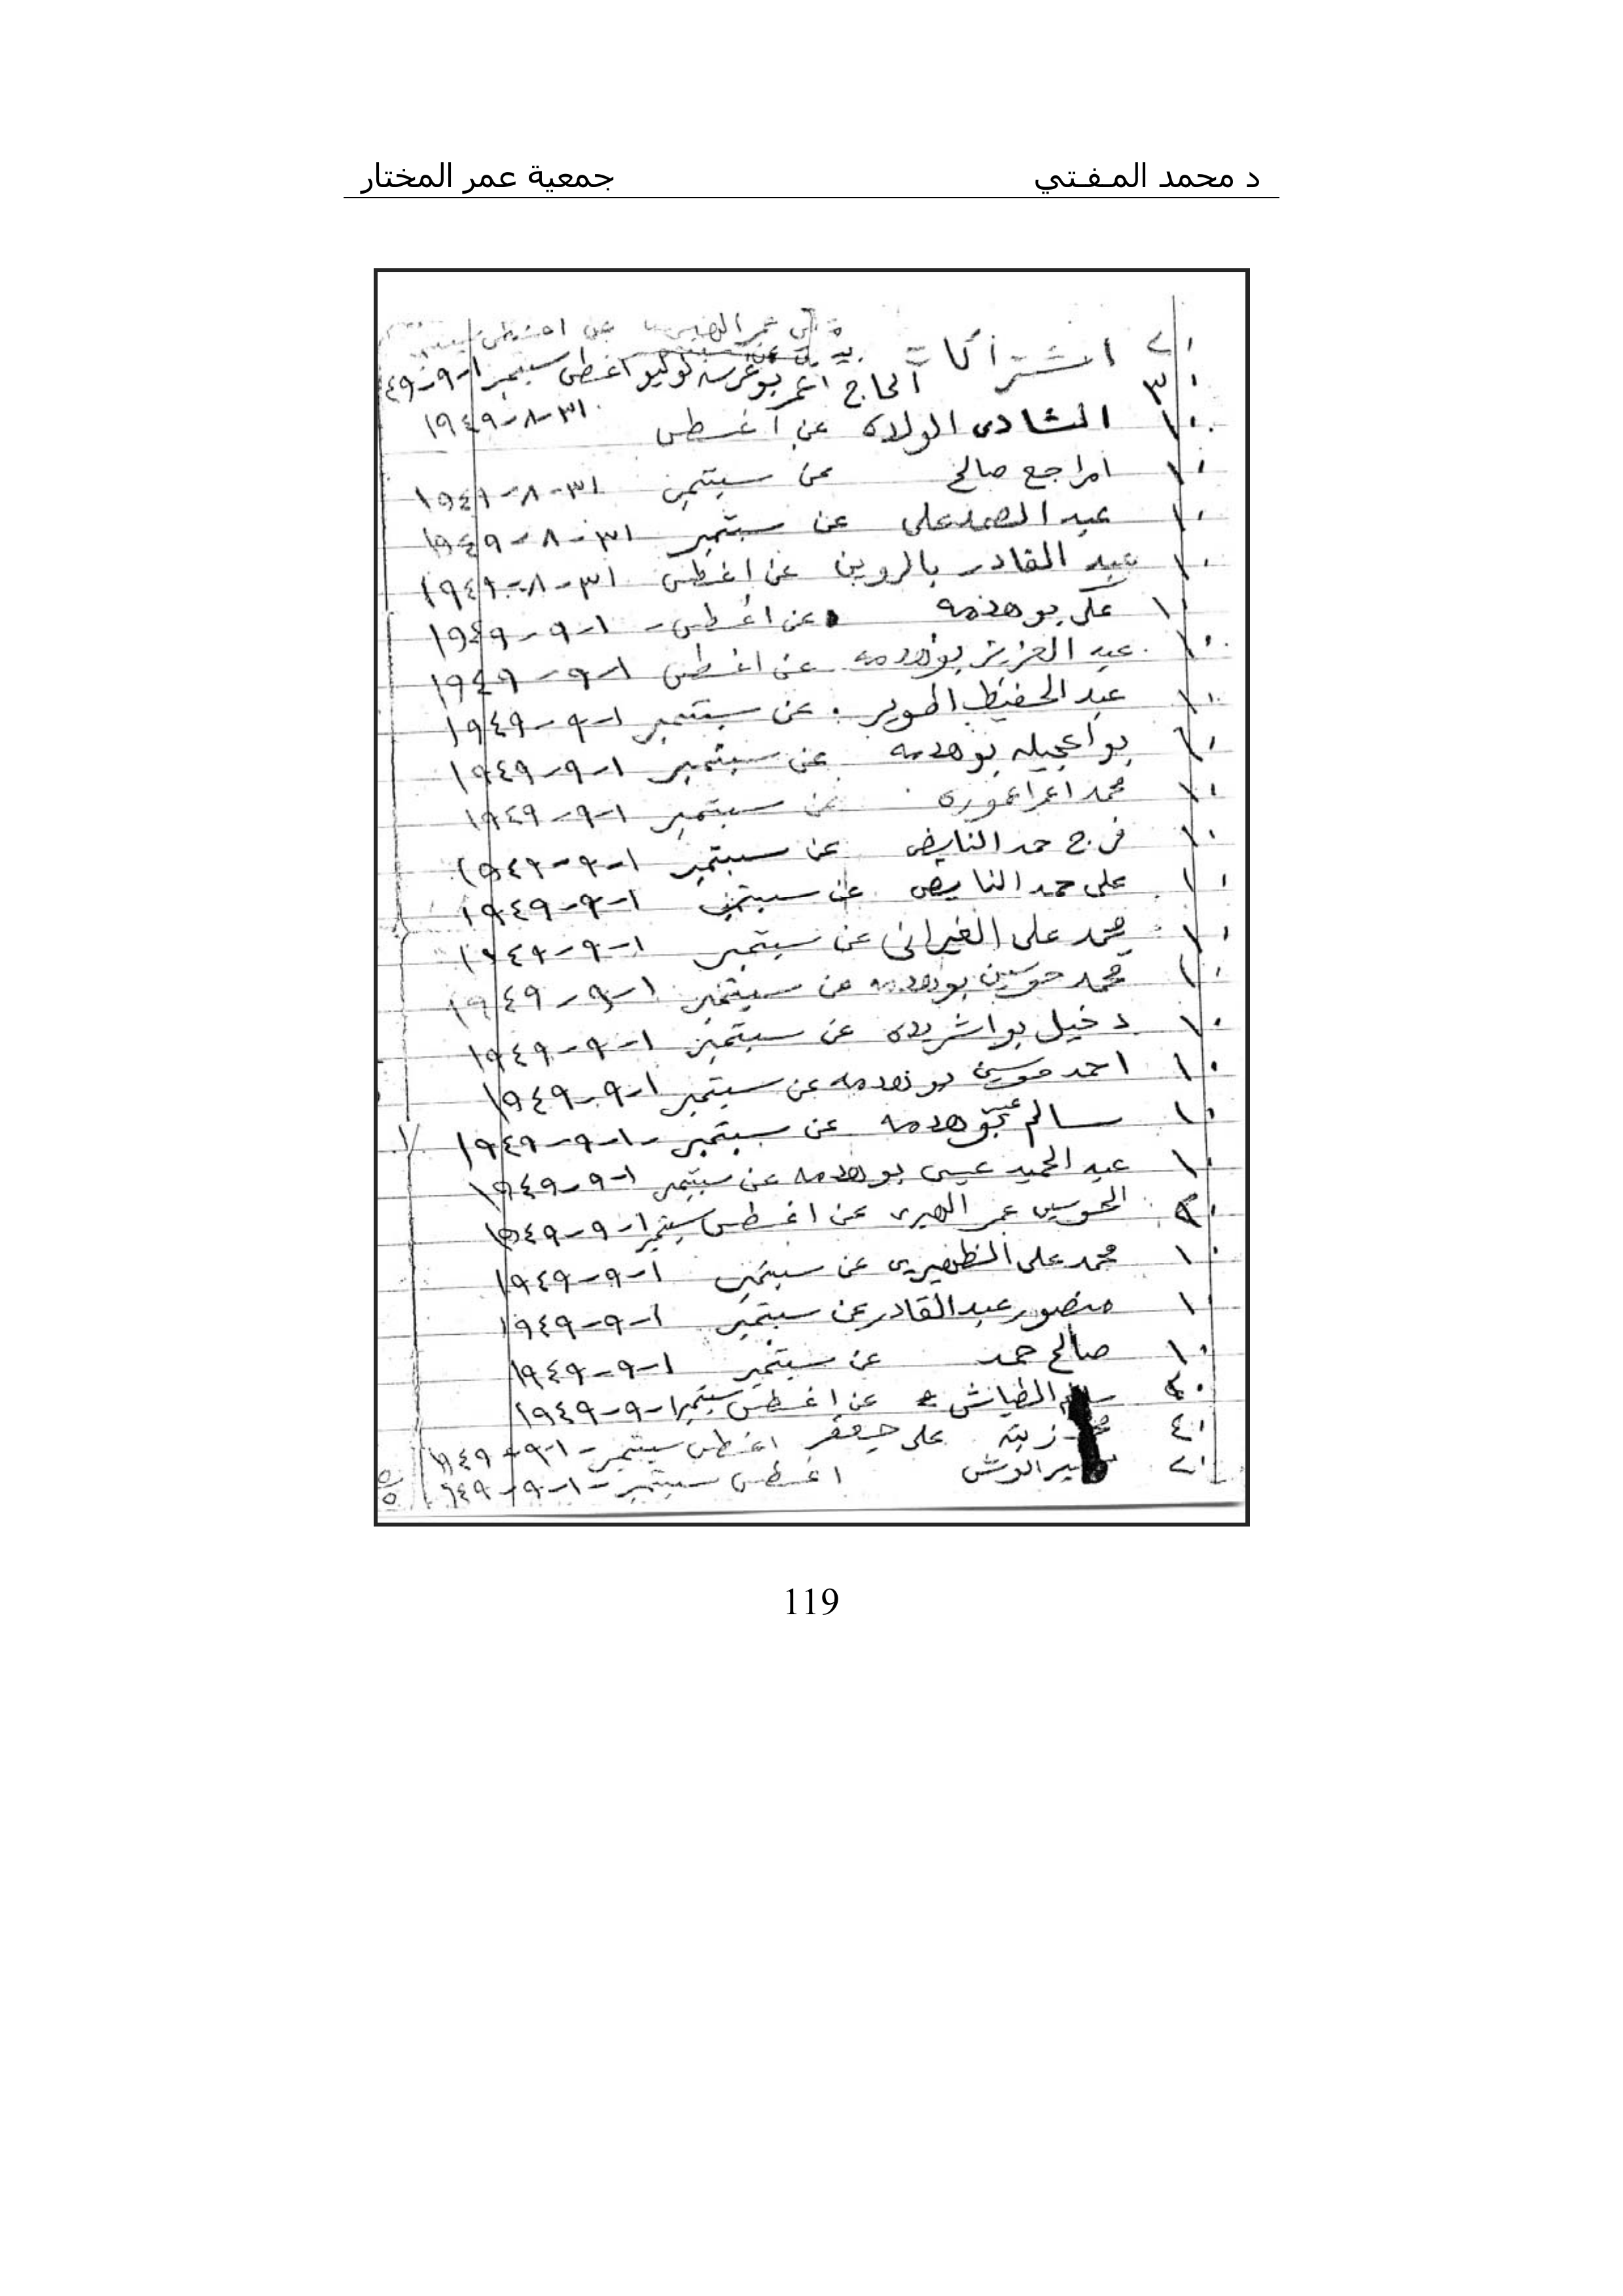 د محمد المـفـتي
جمعية عمر المختار
اشتراكات
٣٠ الحاج اعمر بوغرسه لوليو اغسطس سبتمبر ١-٩-٤٩
١٠ الشادى الولاده عن اغسطس ٣١-٨-١٩٤٩
١٠ امراجع صالح عن سبتمبر ٣١-٨-١٩٤٩
١٠ عبد الصمد على عن سبتمبر ٣١-٨-١٩٤٩
١٠ عبد القادر بالروين عن اغسطس ٣١-٨-١٩٤٩
١٠ على بوهدمه عن اغسطس - ١-٩-١٩٤٩
١٠ عبد العزيز بوهدمه عن اغسطس ١-٩-١٩٤٩
١٠ عبد الحفيظ عن سبتمبر ١-٩-١٩٤٩
بواعجيله بوهدمه عن سبتمبر ١-٩-١٩٤٩
١٠ محمد عن سبتمبر ١-٩-١٩٤٩
١٠ فرج حمد النايض عن سبتمبر ١-٩-١٩٤٩
١٠ على حمد النايض عن سبتمبر ١-٩-١٩٤٩
١٠ محمد على عن سبتمبر ١-٩-١٩٤٩
١٠ محمد حوسين بوهدمه عن سبتمبر ١-٩-١٩٤٩
١٠ دخيل بواشريده عن سبتمبر ١-٩-١٩٤٩
١٠ احمد حوسين بوهدمه عن سبتمبر ١-٩-١٩٤٩
١٠ سالم بوهدمه عن سبتمبر - ١-٩-١٩٤٩
١٠ عبد الحميد عيسى بوهدمه عن سبتمبر ١-٩-١٩٤٩
الحوسين عمر عن اغسطس سبتمبر ١-٩-١٩٤٩
١٠ محمد على عن سبتمبر ١-٩-١٩٤٩
١٠ منصور عبد القادر عن سبتمبر ١-٩-١٩٤٩
١٠ صالح حمد عن سبتمبر ١-٩-١٩٤٩
٢٠ سالم الطياش عن اغسطس سبتمبر ١-٩-١٩٤٩
على جعفر اغسطس سبتمبر - ١-٩-١٩٤٩
اغسطس سبتمبر - ١-٩-
119